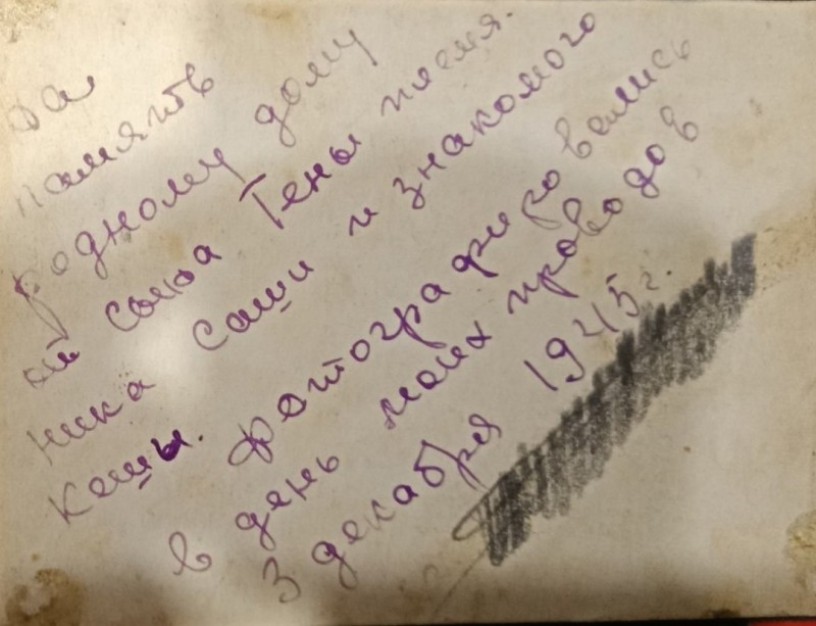 На
память
родному дому
от сына Гены племя-
ника Саши и знакомого
Кеши. Фотографировались
в день моих проводов
3 декабря 1945 г.